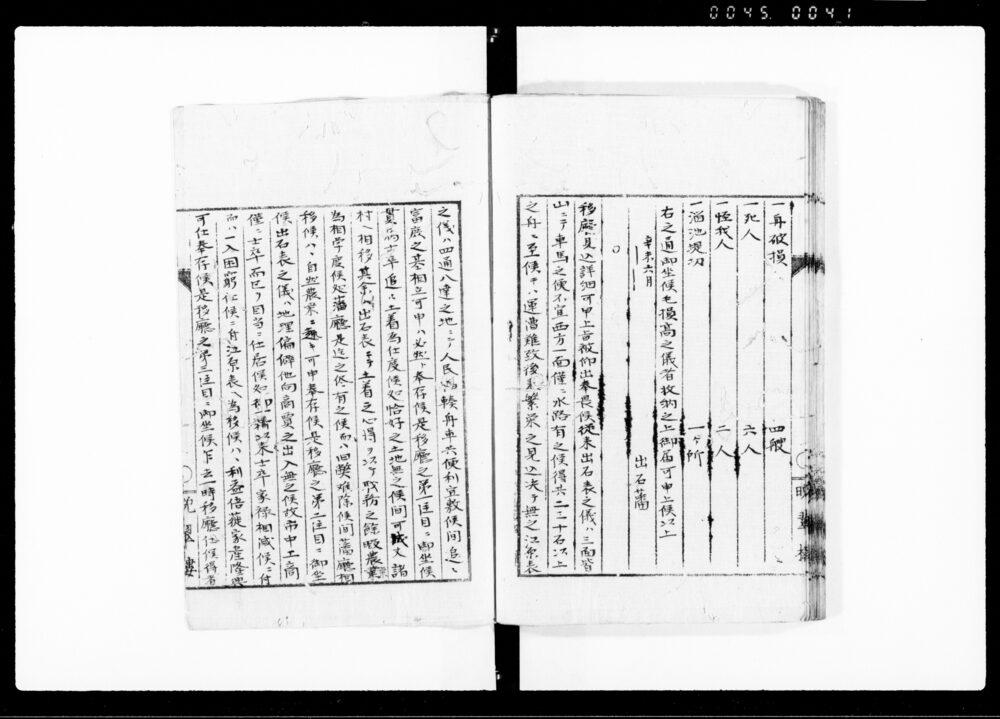 0045 0041
一舟破損 四艘
一死人 六人
一怪我人 二人
一溜池堤切 一ヶ所
右之通御坐候尤損高之儀者枚納之上御届可申上候以上
辛未六月 出石藩
○
移廳見込詳細可申上旨被仰出奉畏候従来出石表之儀ハ三面皆
山ニテ車馬之便不宜西方一面僅ニ水路有之候得共二三十石以上
之舟ニ至候テハ運漕難致後来繁栄之見込決テ無之江原表
之儀ハ四通八達之地ニテ人民輻輳舟車共便利宜敷候間追々
富庶之基相立可申ハ必然ト奉存候是移廳之第一注目ニ御坐候
貫属士卒追々土着為仕度候処恰好之土地無之候間可成丈諸
村ヘ相移其余ハ出石表ニテモ土着之心得ヲ以テ職務之餘暇農業
為相学度候処藩廳是迄之侭有之候而ハ旧弊難除候間藩廳相
移候ハヽ自然農業ニ趣キ可申奉存候是移廳之第二注目ニ御坐
候出石表之儀ハ地理偏僻他向商賈之出入無之候故市中工商
僅ニ士卒而已ヲ目当ニ仕居候処御一新以来士卒家禄相減候ニ付
而ハ一入困窮仕候ニ付江原表ヘ為移候ハヽ利益倍蓰家産隆興
可仕奉存候是移廳之第三注目ニ御坐候乍去一時移廳仕候得者
晩翠楼